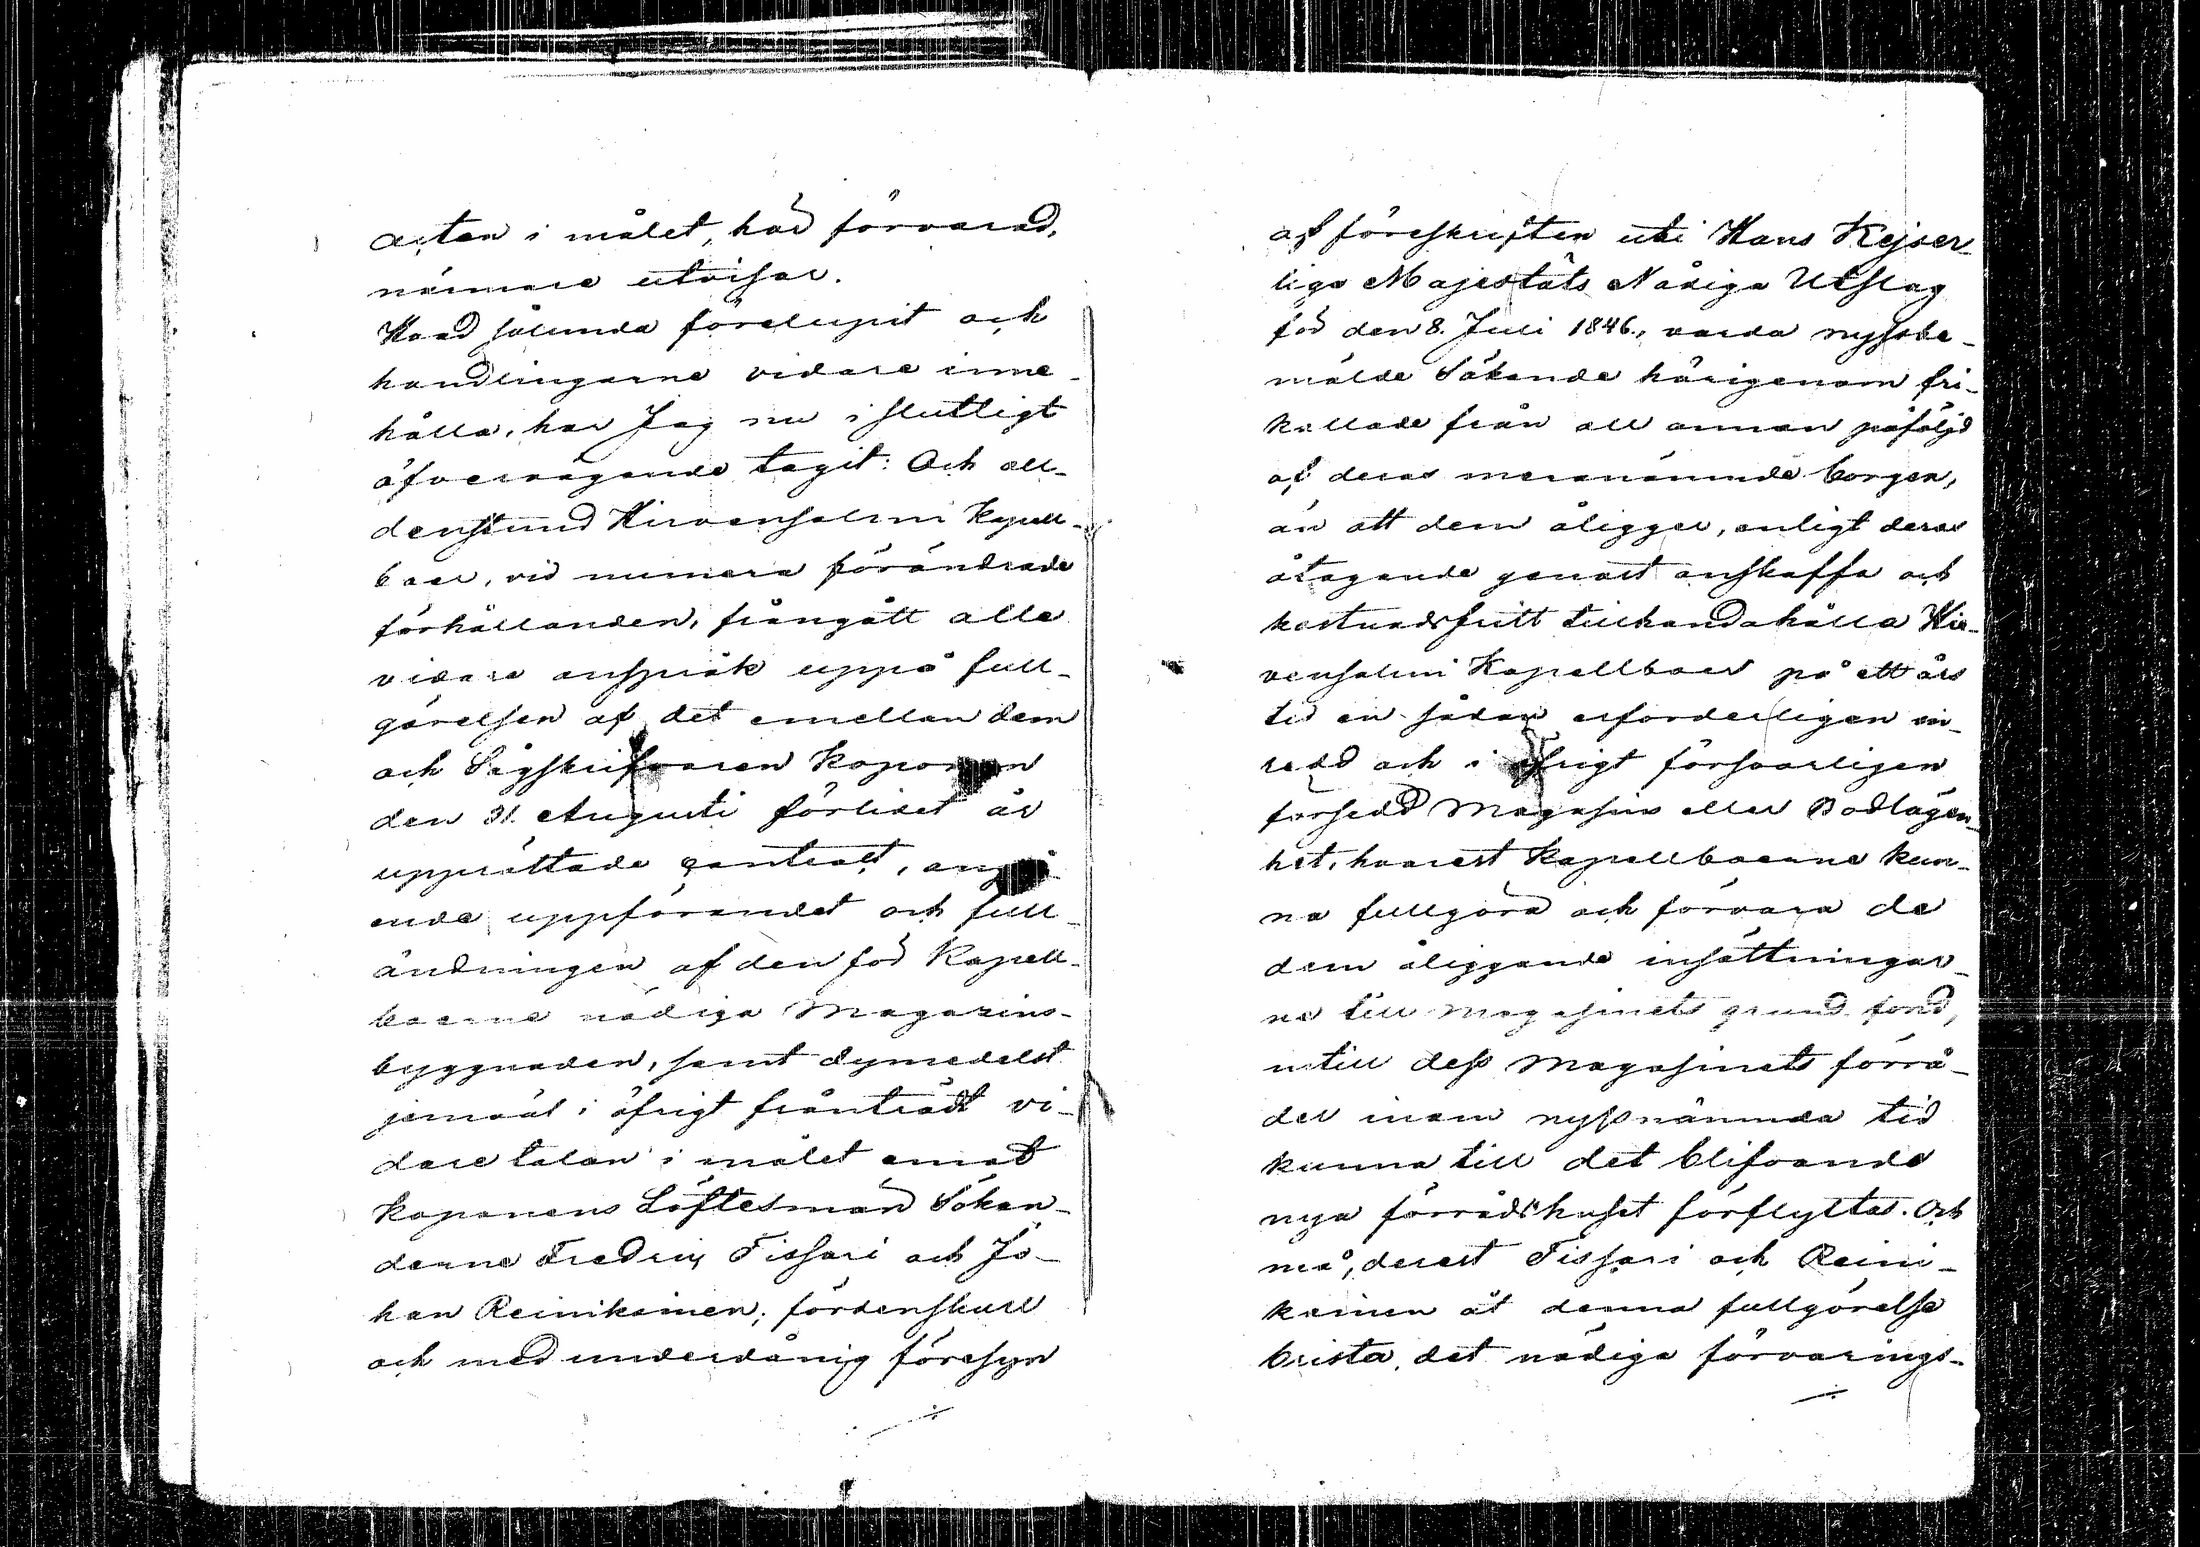 acten i målet, här förvarad,
närmare utvisar.
Hvad sålunda förelupit och
handlingarne vidare inne-
hålla, har Jag nu i slutligt
öfvervägande tagit: Och all-
denstund Hirvensalmi Kapell-
boer, vid numera förändrade
förhållanden, frångått alla
vidare anspråk uppå full-
görelsen af det emellan dem
och Sågskrifvaren Koponen
den 31. Augusti förlidet år
upprättade contract, angå
ende uppförandet och full-
ändningen af den för Kapell-
boerne nödiga Magazins-
byggnaden, samt dymedelst
jemväl i öfrigt frånträdt vi-
dare talan i målet emot
Koponens Löftesmän Sökan-
derne Fredric Tissari och Jo-
han Reinikainen; fördenskull
och med underdånig föresyn
af föreskriften uti Hans Kejser-
liga Majestäts Nådiga Utslag
för den 8. Juli 1846., varda nyssbe-
mälde Sökande härigenom fri-
kallade från all annan påföljd
af deras meranämnde borgen,
än att dem åligger, enligt deras
åtagande genast anskaffa och
kostnadsfritt tillhandahålla Hir-
vensalmi Kapellboer på ett års
tid en sådan erforderligen in-
redd och i öfrigt försvarligen
försedd Magasin eller Bodlägen-
het, hvarest Kapellboerne kun-
na fullgöra och förvara de
dem åliggande insättningar-
ne till Magasinets grund fond,
intill dess Magasinets förrå-
der inom nyssnämnda tid
kunna till det blifvande
nya förrådshuset förflyttas. Och
må, derest Tissari och Reini-
kainen åt denna fullgörelse
brista, det nödiga förvarings-